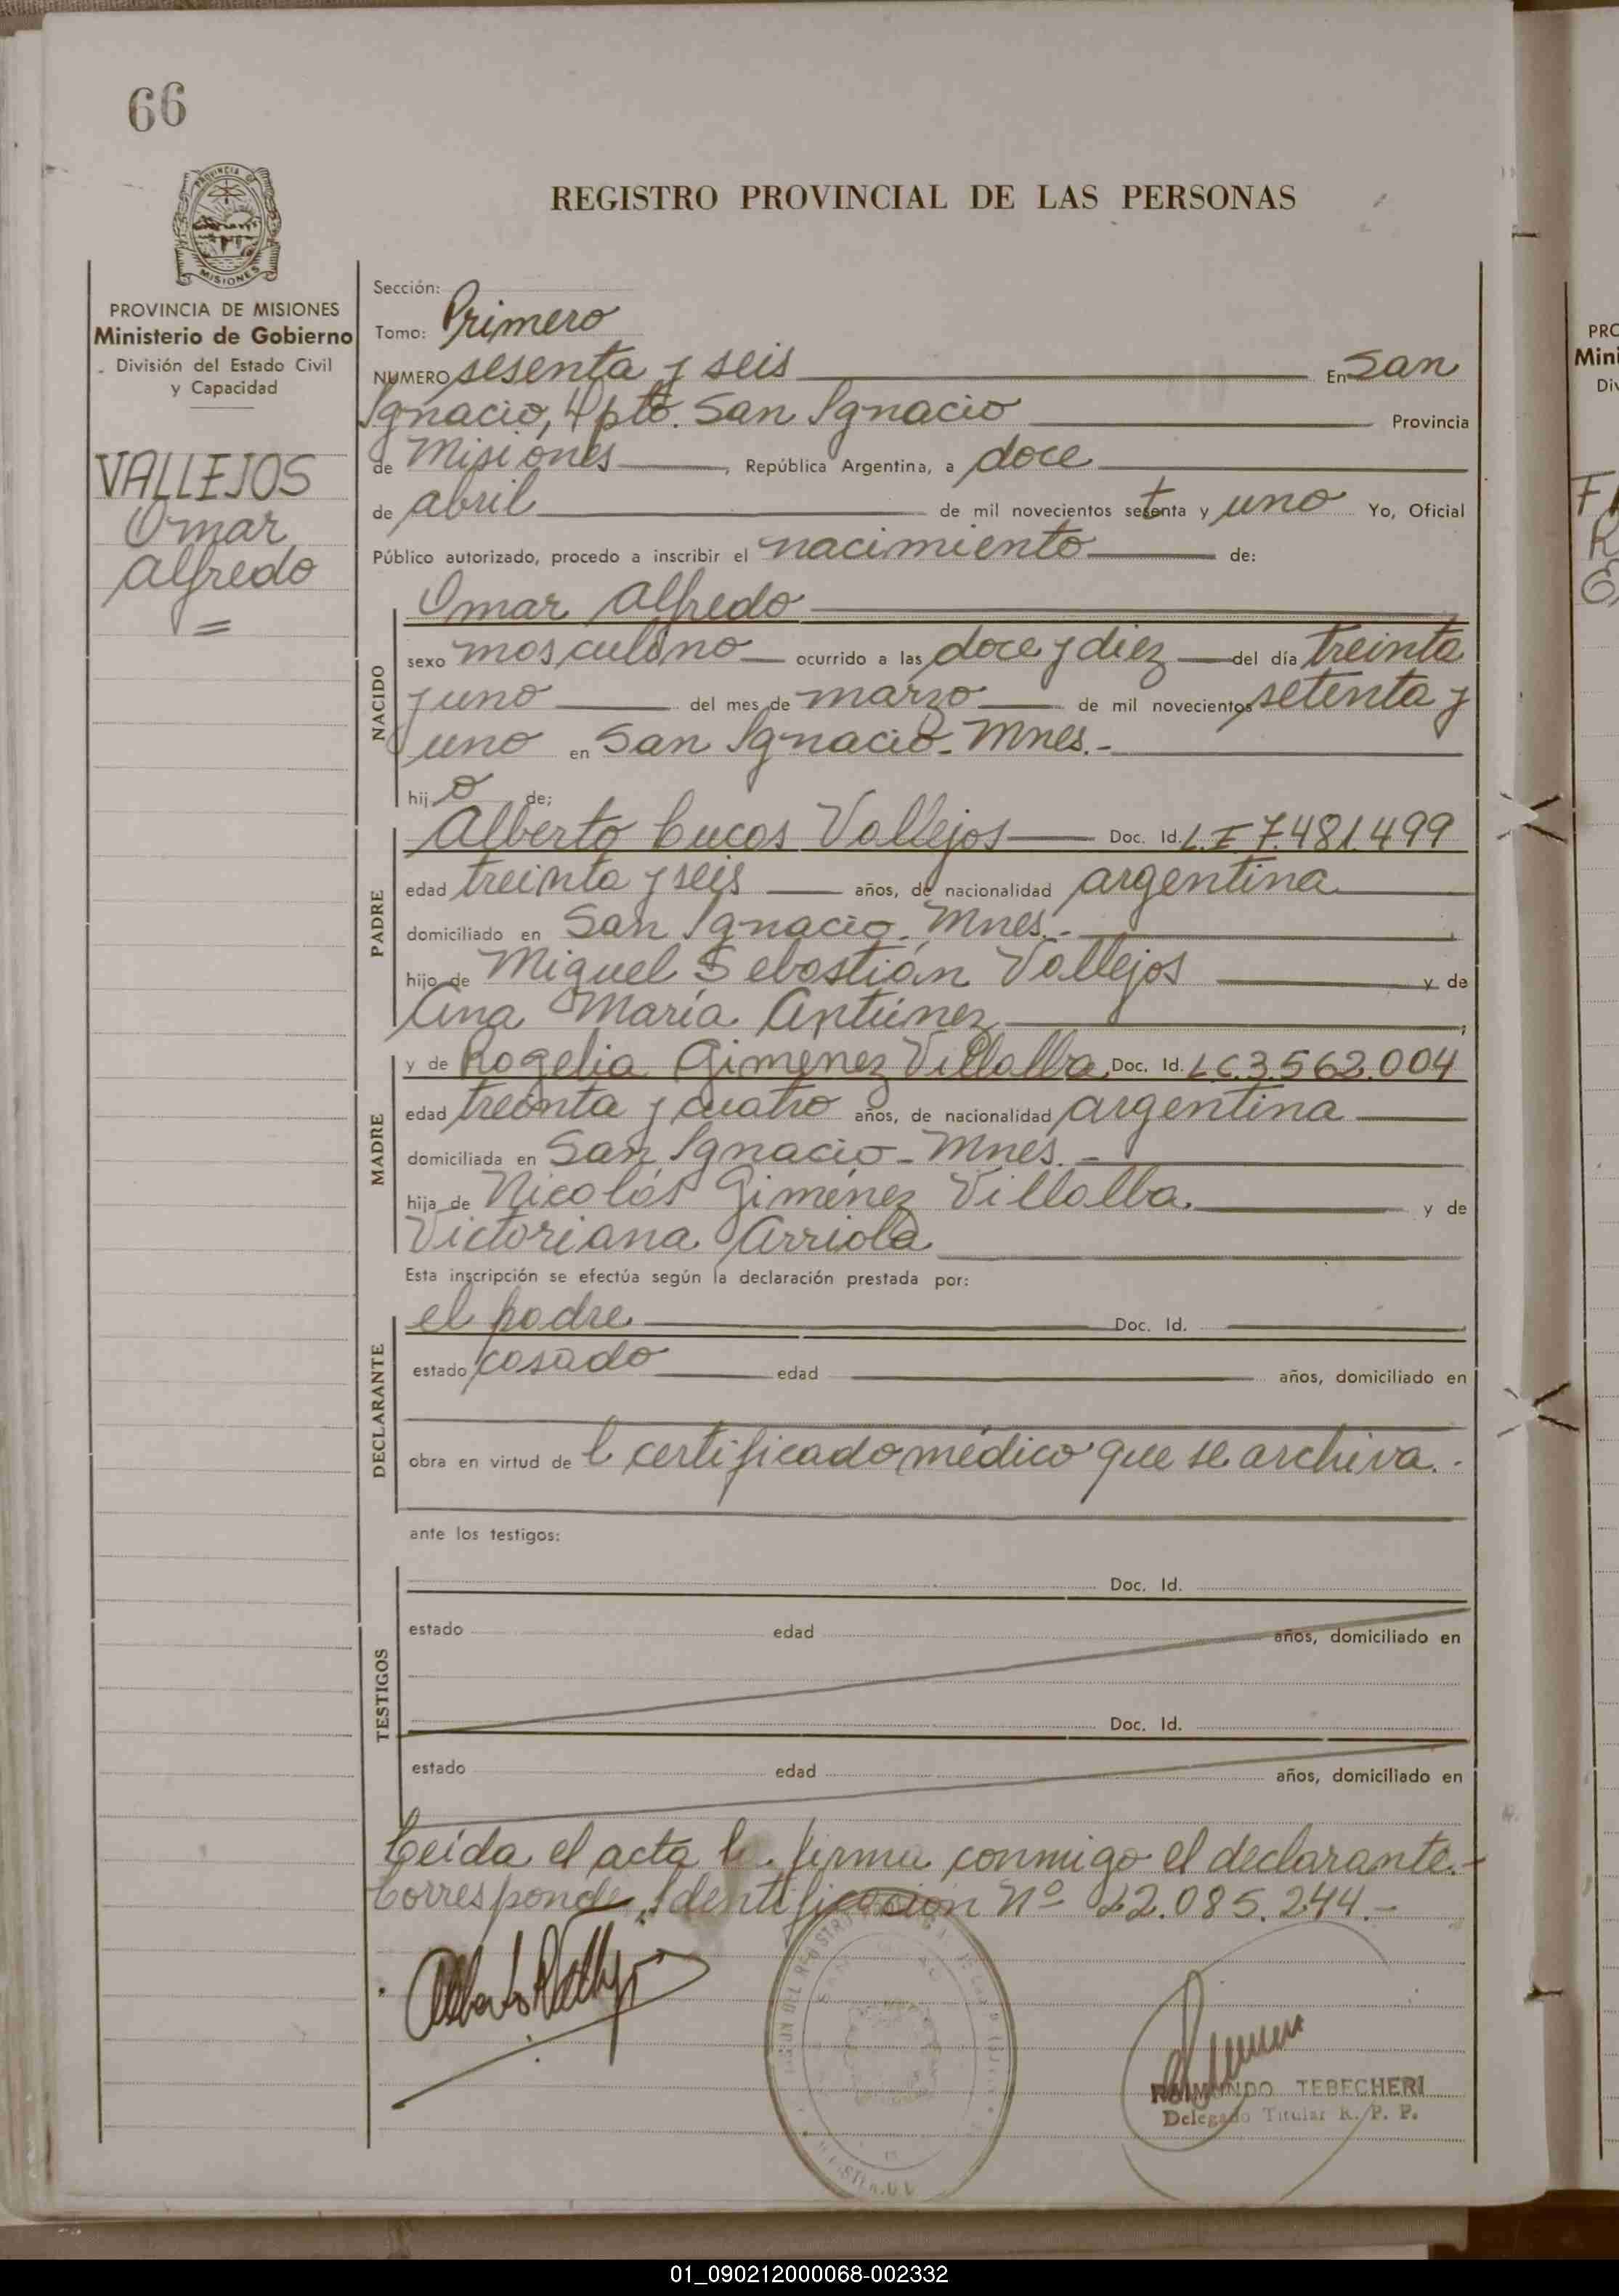 66
REGISTRO PROVINCIAL DE LAS PERSONAS
PROVINCIA DE MISIONES
Ministerio de Gobierno
División del Estado Civil
y Capacidad
VALLEJOS
Omar
Alfredo
Sección:
Tomo: Primero
NUMERO sesenta y seis En San
Ignacio, Dpto. San Ignacio Provincia
de Misiones, República Argentina, a doce
de abril de mil novecientos setenta y uno Yo, Oficial
Público autorizado, procedo a inscribir el nacimiento de:
NACIDO
Omar Alfredo
sexo masculino ocurrido a las doce y diez del día treinta
y uno del mes de marzo de mil novecientos setenta y
uno en San Ignacio - Mnes.-
hijo de:
PADRE
Alberto Lucas Vallejos Doc. Id. L.E 7.481.499
edad treinta y seis años, de nacionalidad argentina
domiciliado en San Ignacio. Mnes.-
hijo de Miguel Sebastián Vallejos y de
Ana María Antúnez;
MADRE
y de Rogelia Gimenez Villalba, Doc. Id. L.C.3.562.004
edad treinta y cuatro años, de nacionalidad argentina
domiciliada en San Ignacio - Mnes. -
hija de Nicolás Giménez Villalba. y de
Victoriana Arriola
Esta inscripción se efectúa según la declaración prestada por:
DECLARANTE
el padre Doc. Id.
estado casado edad años, domiciliado en
obra en virtud del certificado médico que se archiva.-
ante los testigos:
TESTIGOS
Doc. Id.
estado edad años, domiciliado en
Doc. Id.
estado edad años, domiciliado en
Leída el acta la firma conmigo el declarante.-
Corresponde Identificación Nº 22.085.244.-
RAIMUNDO TEBECHERI
Delegado Titular R. P. P.
01_090212000068-002332